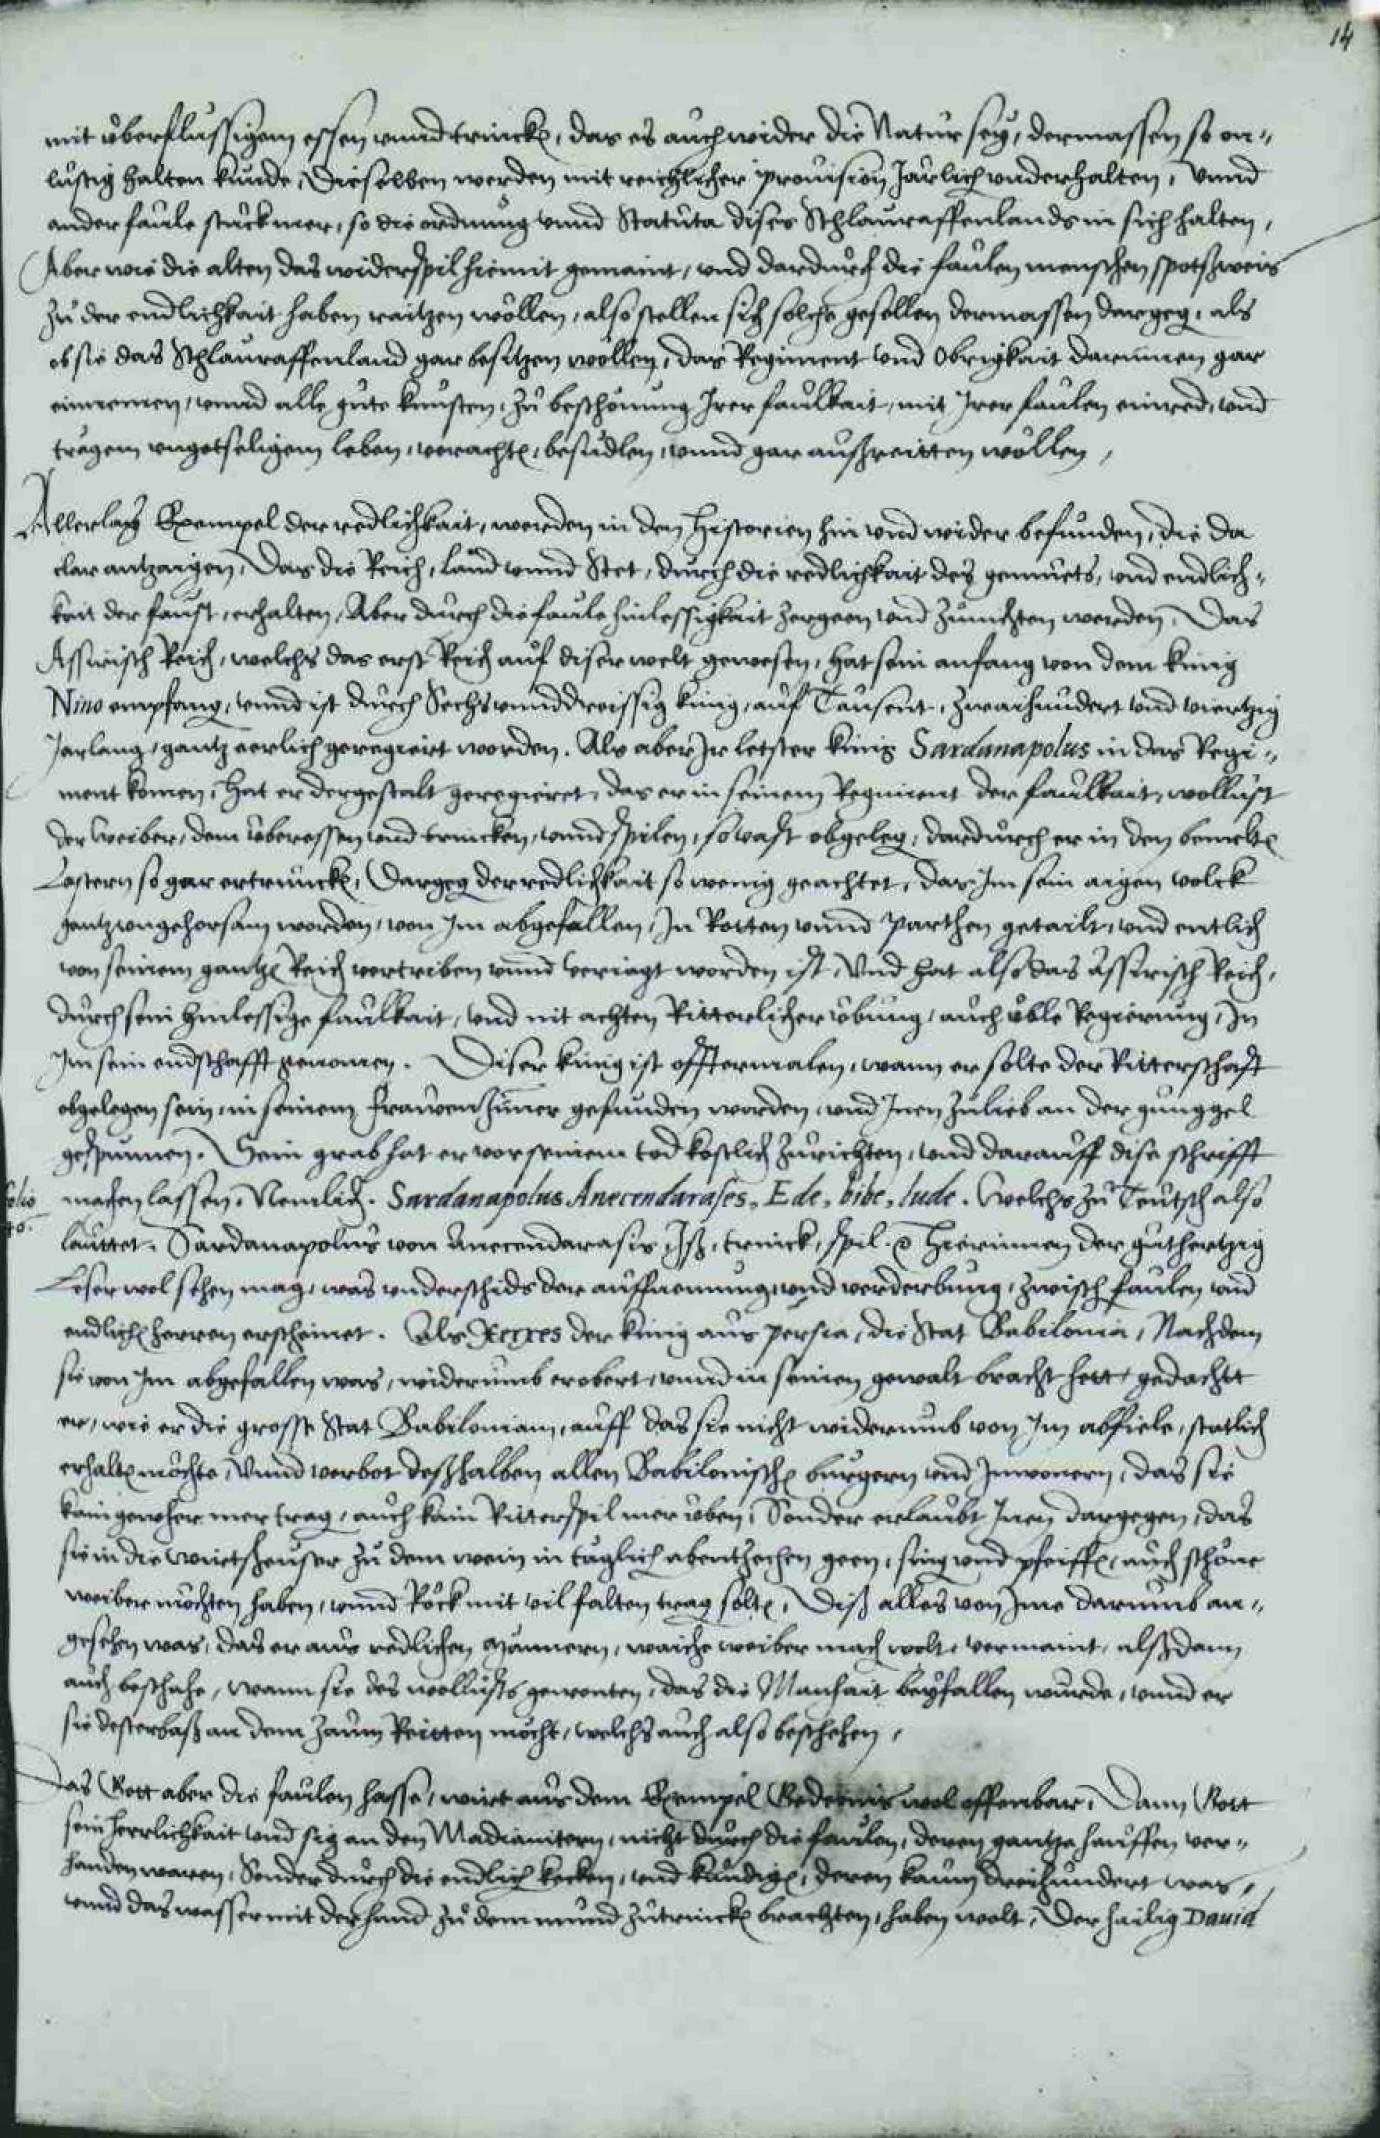 14
mit vberflüssigem essen vnnd trincken, das es auch wider die Natur sey, dermassen so on-
lustig halten kunde, Dieselben werden mit reichlicher prouision Järlich vnderhalten, Vnnd
ander faule stuck mer, so die ordnung vnnd Statuta dises Schlauraffenlands in sich halten,
Aber wie die alten das widerspil hiemit gemaint, vnd dardurch die faulen menschen spotßweis
zu der endlichkait haben raitzen wöllen, also stellen sich solche gesellen dermassen dargeg, als
ob sie das Schlauraffenland gar besitzen wöllen, das Regiment vnd Obrigkait darinnen gar
einnemen, vnnd alle gute kunsten, zu beschönung Irer faulkait, mit Irer faulen einred, vnd
trägem vngotseligem leben, verachten, besudlen, vnnd gar außreitten wöllen,
Allerlay Exempel der redlichkait, werden in den Historien hin vnd wider befunden, die da
clar antzaigen, Das die Reich, land vnnd Stet, durch die redlichkait des gemüets, vnd endlich-
kait der faust, erhalten, Aber durch die faule hinlessigkait zergeen vnd zunichten werden. Das
Assirisch Reich, welchs das erst Reich auf diser welt gewesen, hat sein anfang von dem künig
Nino empfang, vnnd ist durch Sechsvnnddreissig künig, auf Tausent, zwaihundert vnd viertzig
Jarlang, gantz eerlich geregieret worden. Als aber Ir letster künig Sardanapolus in das Regi-
ment komen, hat er dergestalt geregieret, das er in seinem Regiment der faulkait, wollust
der Weiber, dem vberessen vnd trincken, vnnd spilen, so vast obgeleg, dardurch er in den bemelten
Lastern so gar ertruncken, Dargeg der redlichkait so wenig geachtet, das Im sein aigen volck
gantz vngehorsam worden, von Im abgefallen, In Rotten vnnd parthen getailt, vnd entlich
von seinem gantzen Reich vertriben vnnd veriagt worden ist, Vnd hat also das Assirisch Reich,
durch sein hinlessige faulkait, vnd nit achten Ritterlicher vbung, auch vble Regierung, In
Im sein endschafft genomen. Diser künig ist offtermalen, wann er solte der Ritterschaft
obgelegen sein, in seinem frawenzimer gefunden worden, vnd Inen zulieb an der gunggel
gespunnen. Sein grab hat er vor seinem tod kostlich zurichten, vnd darauff dise schrifft
machen lassen, Nemlich. Sardanapolus Anecendarases, Ede, bibe, lude. Welchs zu Teutsch also
lauttet. Sardanapolus von Anecendarasis Iß, trinck, spil. Hierinnen der guthertzig
Leser wol sehen mag, was vnderschids der auffnemung vnd verderbung, zwisch faulen vnd
endlichen herren erscheinet. Als Xerxes der künig aus persia, die Stat Babilonia, Nachdem
sie von Im abgefallen was, widerumb erobert, vnnd in seinen gewalt bracht hett, gedachtt
er, wie er die grosse Stat Babiloniam, auff das sie nicht widerumb von Im abfiele, statlich
erhalten möchte, Vnnd verbot deßhalben allen Babilonischen burgern vnd Inwonern, das sie
kain gewher mer trag, auch kain Ritterspil mer vben, Sonder erlaubt Inen dargegen, das
sie in die wirtsheuser zu dem wein in täglich abentzechen geen, sing vnd pfeiffen, auch schöne
weiber möchten haben, vnnd Röck mit vil falten trag solten, Diß alles von Ime darumb an-
gesehen was, das er aus redlichen Männern, waiche weiber mach wolt, vermaint, alßdann
auch beschahe, wann sie des wollusts gewonten, das die Manhait beyfallen wurde, vnnd er
sie desterbaß an dem zaum Reitten möcht, welchs auch also beschehen,
Das Gott aber die faulen hasse, wirt aus dem Exempel Gedeonis wol offenbar, Dann Gott
sein herrlichkait vnd sig an den Madianitern, nicht durch die faulen, deren gantze hauffen ver-
handen waren, Sonder durch die endlich kecken, vnd kundigen, deren kaum dreihundert was,
vnnd das wasser mit der hand zu dem mund zutrincken brachten, haben wolt, Der hailig Dauid